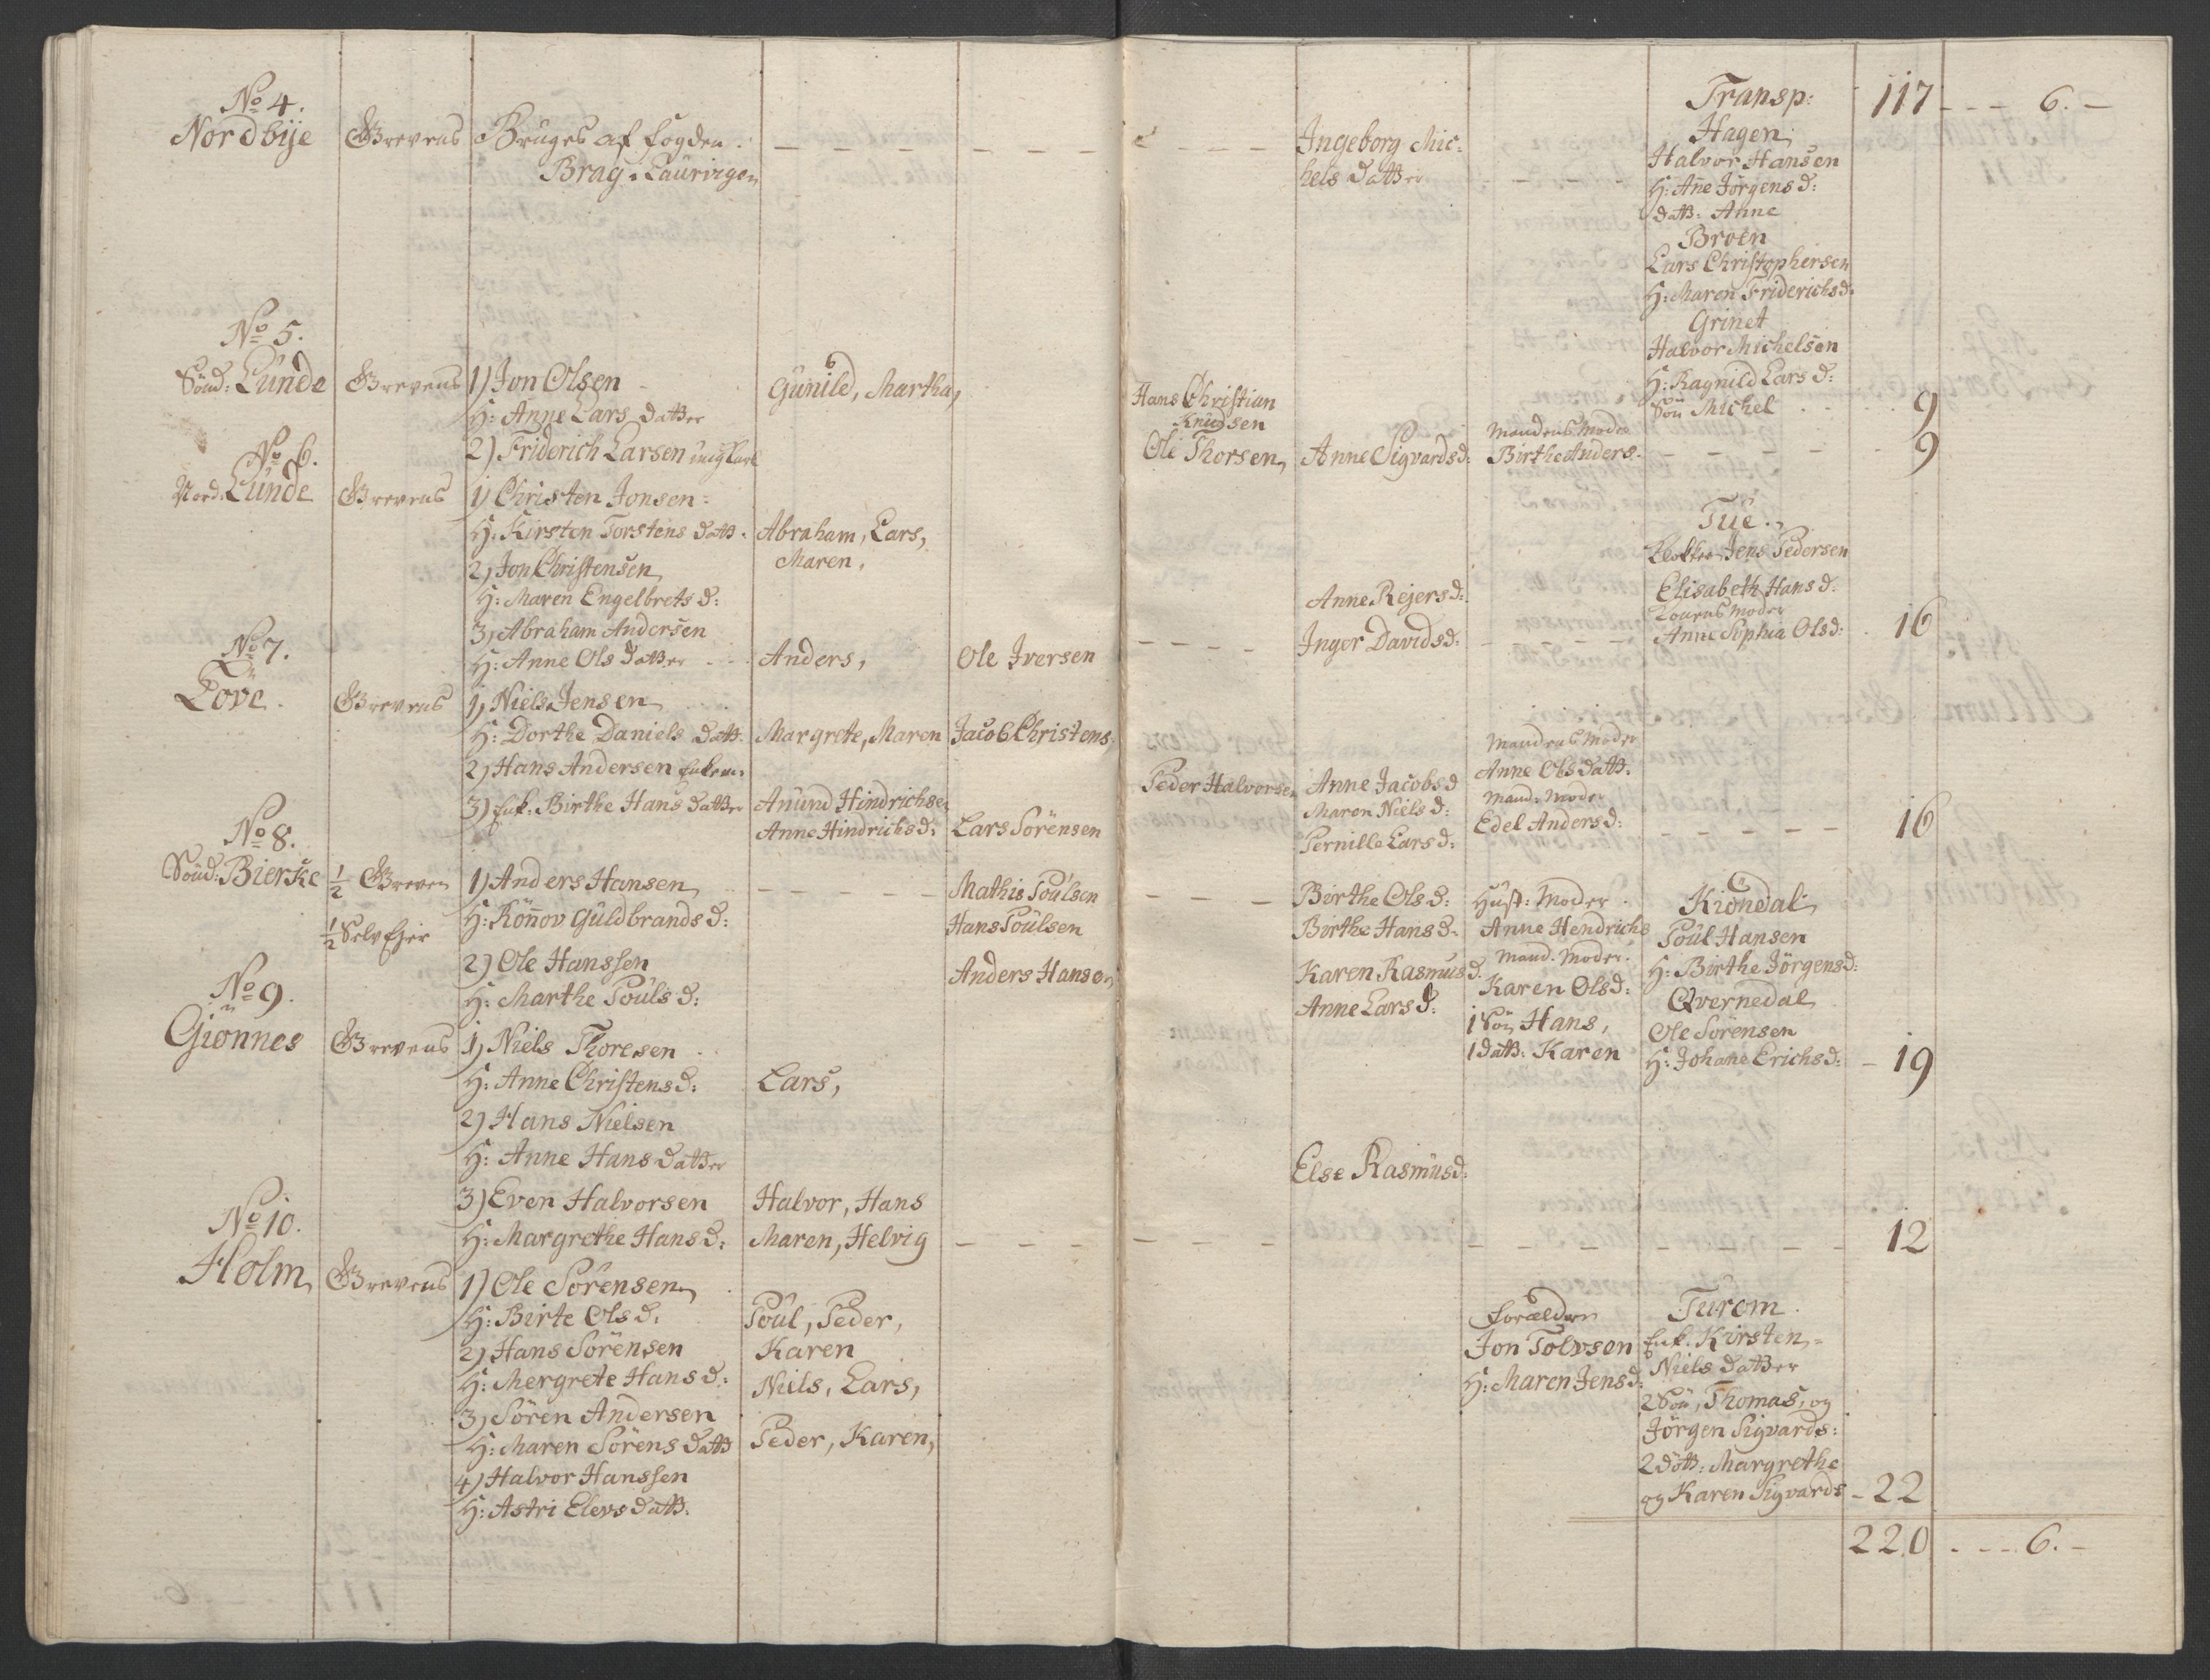 Transp: 117 - - - 6. -
No 4.
Nordbije Grevens Bruges af fogden
Brag i Laurvigen
Ingeborg Mic-
hels datter
Hagen
Halvor Hansen
H: Añe Jörgens d:
datt: Anne
Broen
Lars Christophersen
H: Maren Friderichs d:
Grinet
Halvor Michelsen
H: Ragnild Lars d:
Sön Michel - 9
No 5.
Sönd: Lunde Grevens 1) Jon Olsen
H: Anne Lars datter
2) Friderich Larsen ungkarl
Gunild, Martha,
Hans Christian
Knudsen
Ole Thorsen
Anne Sigvards d:
Mandens Moder
Birthe Anders. - - - - - 9
No 6.
Nord: Lunde Grevens 1) Christen Jonsen
H: Kirsten Torstens datt.
2) Jon Christensen
H: Maren Engelbrets d:
3) Abraham Andersen
H: Anne Ols datter
Abraham, Lars,
Maren,
Anders,
Ole Iversen
Anne Rejers d:
Inger Davids d:
Tue.
Klokker Jens Pedersen
Elisabeth Hans d:
Konens Moder
Anne Sophia Ols d: 16
No 7.
Löve. Grevens 1) Niels Jensen
H: Dorthe Daniels datt.
2) Hans Andersen Enkem:
3) Enk. Birthe Hans datter
Margrete, Maren
Anund Hindrichsen
Anne Hindrichs d:
Jacob Christens.
Lars Sörensen
Peder Halvorsen
Anne Jacobs d
Maren Niels d:
Pernille Lars d:
Mandens Moder
Anne Ols datt.
Mand: Moder
Edel Anders d: - - - - - 16
No 8.
Sönd: Bierke ½ Greven
½ Selv Ejer
1) Anders Hansen
H: Rönnov Guldbrands d:
2) Ole Hanssen
H: Marthe Pouls d:
Mathis Poulsen
Hans Poulsen
Anders Hansen
Birthe Ols d:
Birthe Hans d:
Karen Rasmus d.
Anne Lars d:
Hust: Moder
Anne Hendrichs
Mand. Moder.
Karen Ols d:
1 Sön Hans,
1 datt: Karen
Kiöndal
Poul Hansen
H: Birthe Jörgens d:
Qvernedal
Ole Sörensen
H: Johane Erichs d: - 19
No 9.
Giönnes Grevens 1) Niels Thoresen
H: Anne Christens d:
2) Hans Nielsen
H: Anne Hans datter
3) Even Halvorsen
H: Margrethe Hans d:
Lars,
Halvor, Hans
Maren, Helvig
Else Rasmus d:
12
No 10.
Holm Grevens 1) Ole Sörensen
H: Birte Ols d:
2) Hans Sörensen
H: Mergrete Hans d:
3) Sören Andersen
H: Maren Sörens datt
4) Halvor Hanssen
H: Astri Elevs datt.
Poul, Peder,
Karen
Niels, Lars,
Peder, Karen,
Forældre
Jon Tolvsen
H: Maren Jens d:
Turom.
Enk. Kirsten
Niels datter
2 Sön, Thomas, og
Jörgen Sigvards:
2 dött: Margrethe
og Karen Sigvards - 22
220 - - - 6. -